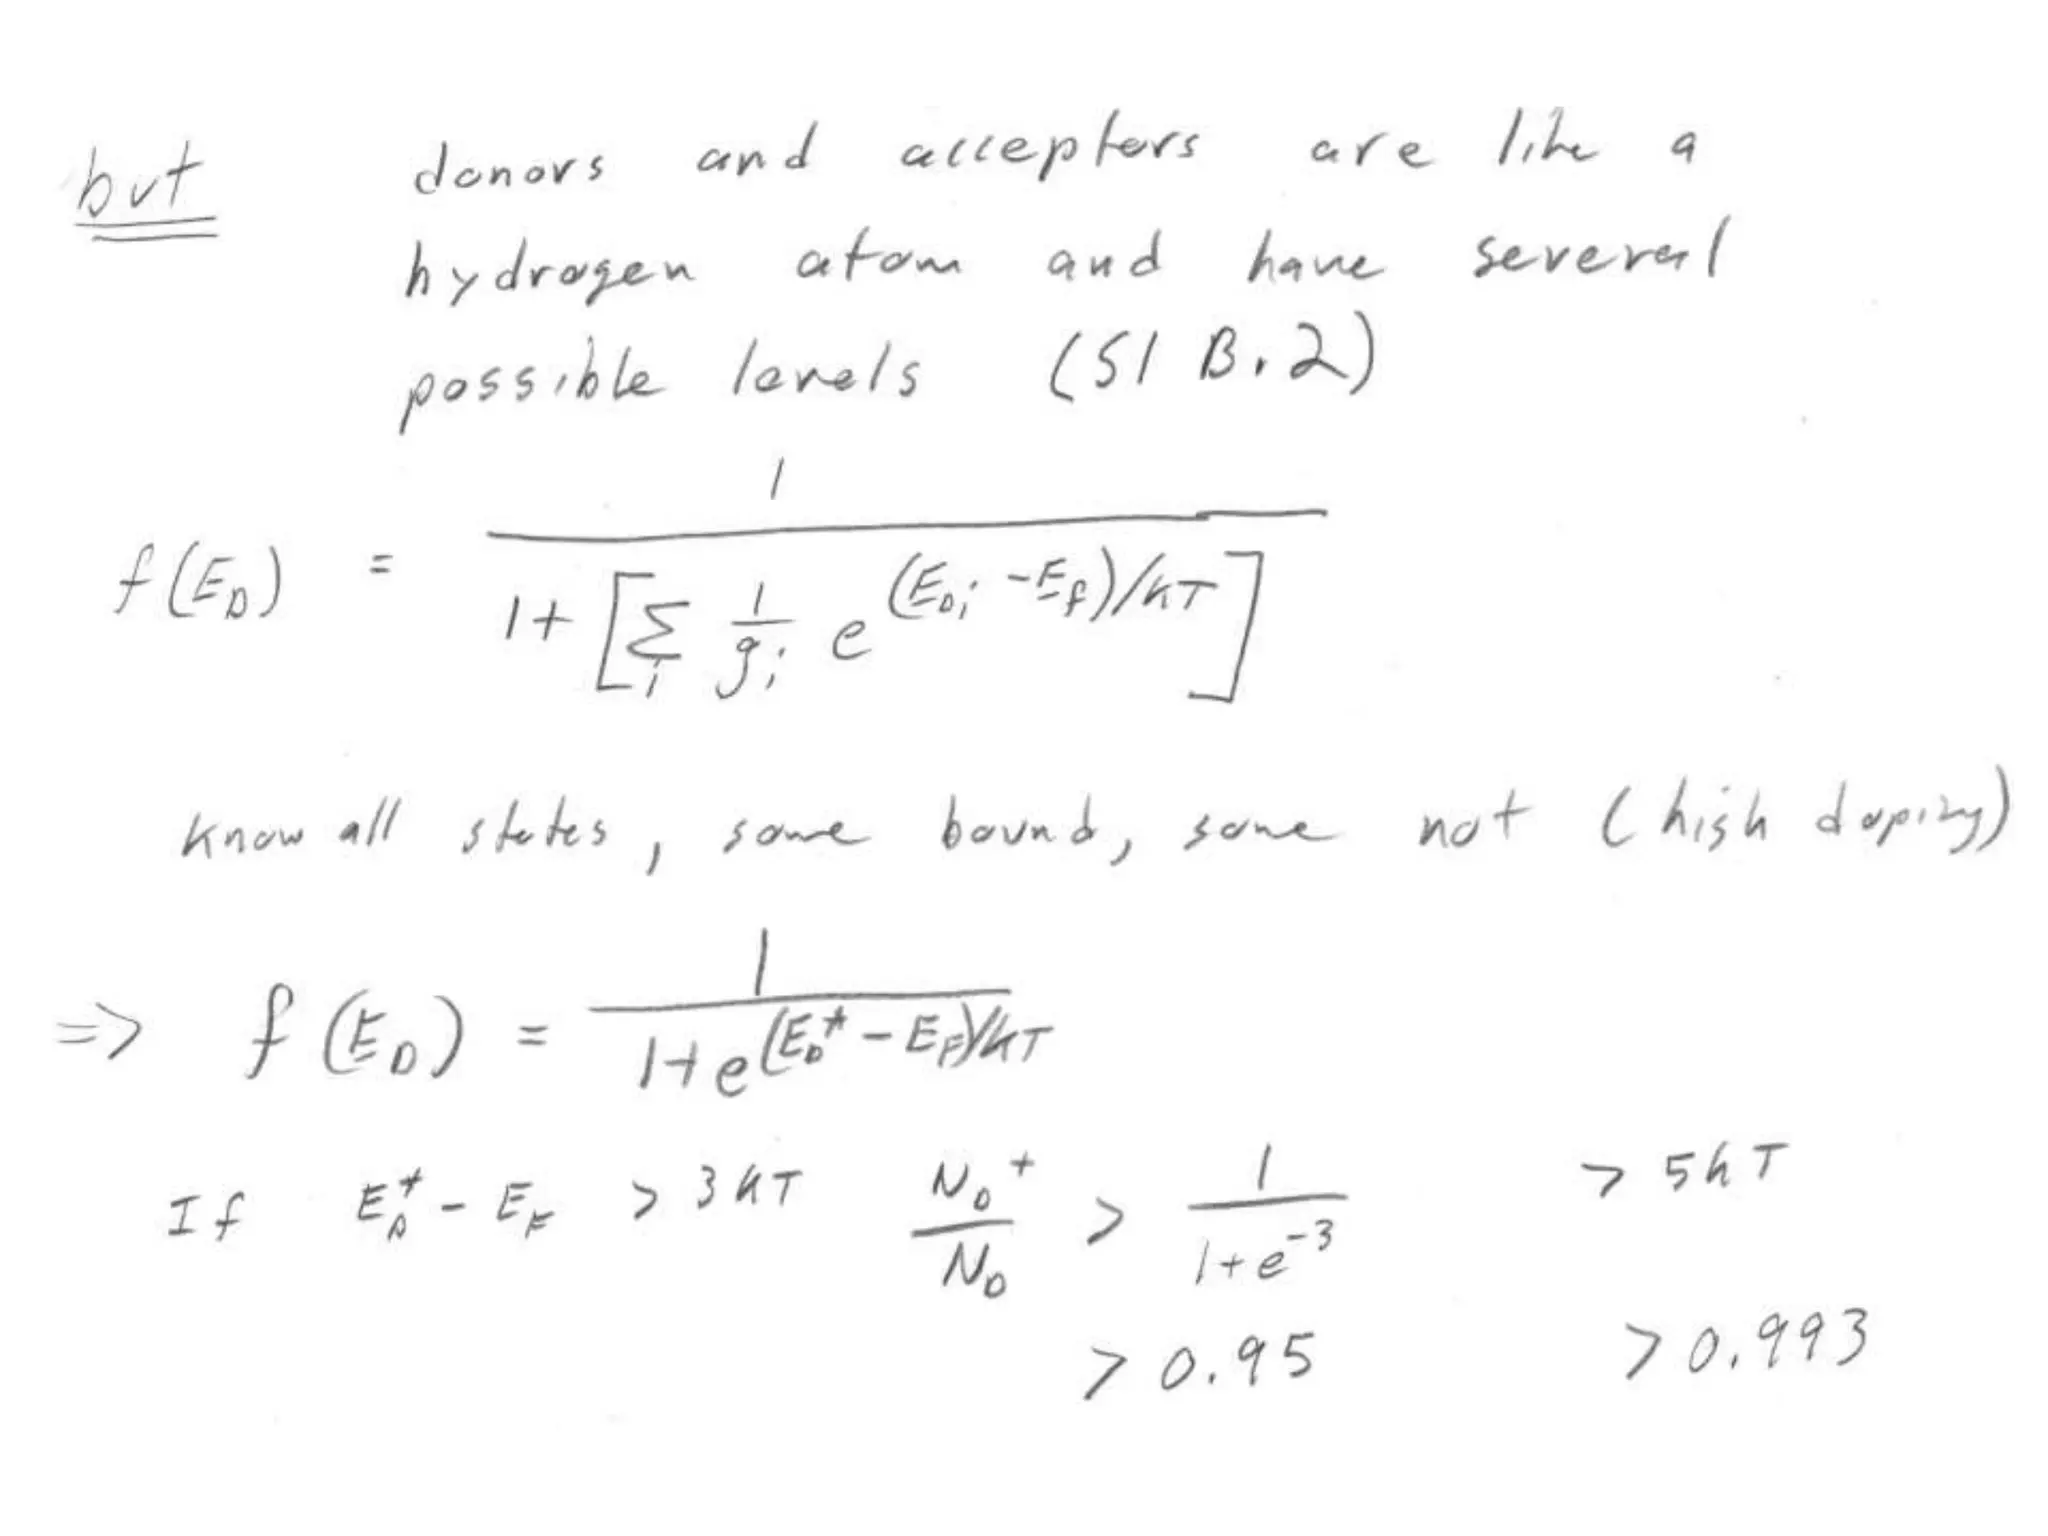 but donors and acceptors are like a
hydrogen atom and have several
possible levels (S1 B.2)
f(E_D) = 1 / (1 + [Σ_i 1/g_i e^{(E_Di - E_f)/kT}])
know all states, some bound, some not (high doping)
=> f(E_D) = 1 / (1 + e^{(E_D* - E_F)/kT})
If E_D* - E_F > 3kT N_D^+ / N_D > 1 / (1 + e^{-3}) > 5kT
> 0.95 > 0.993